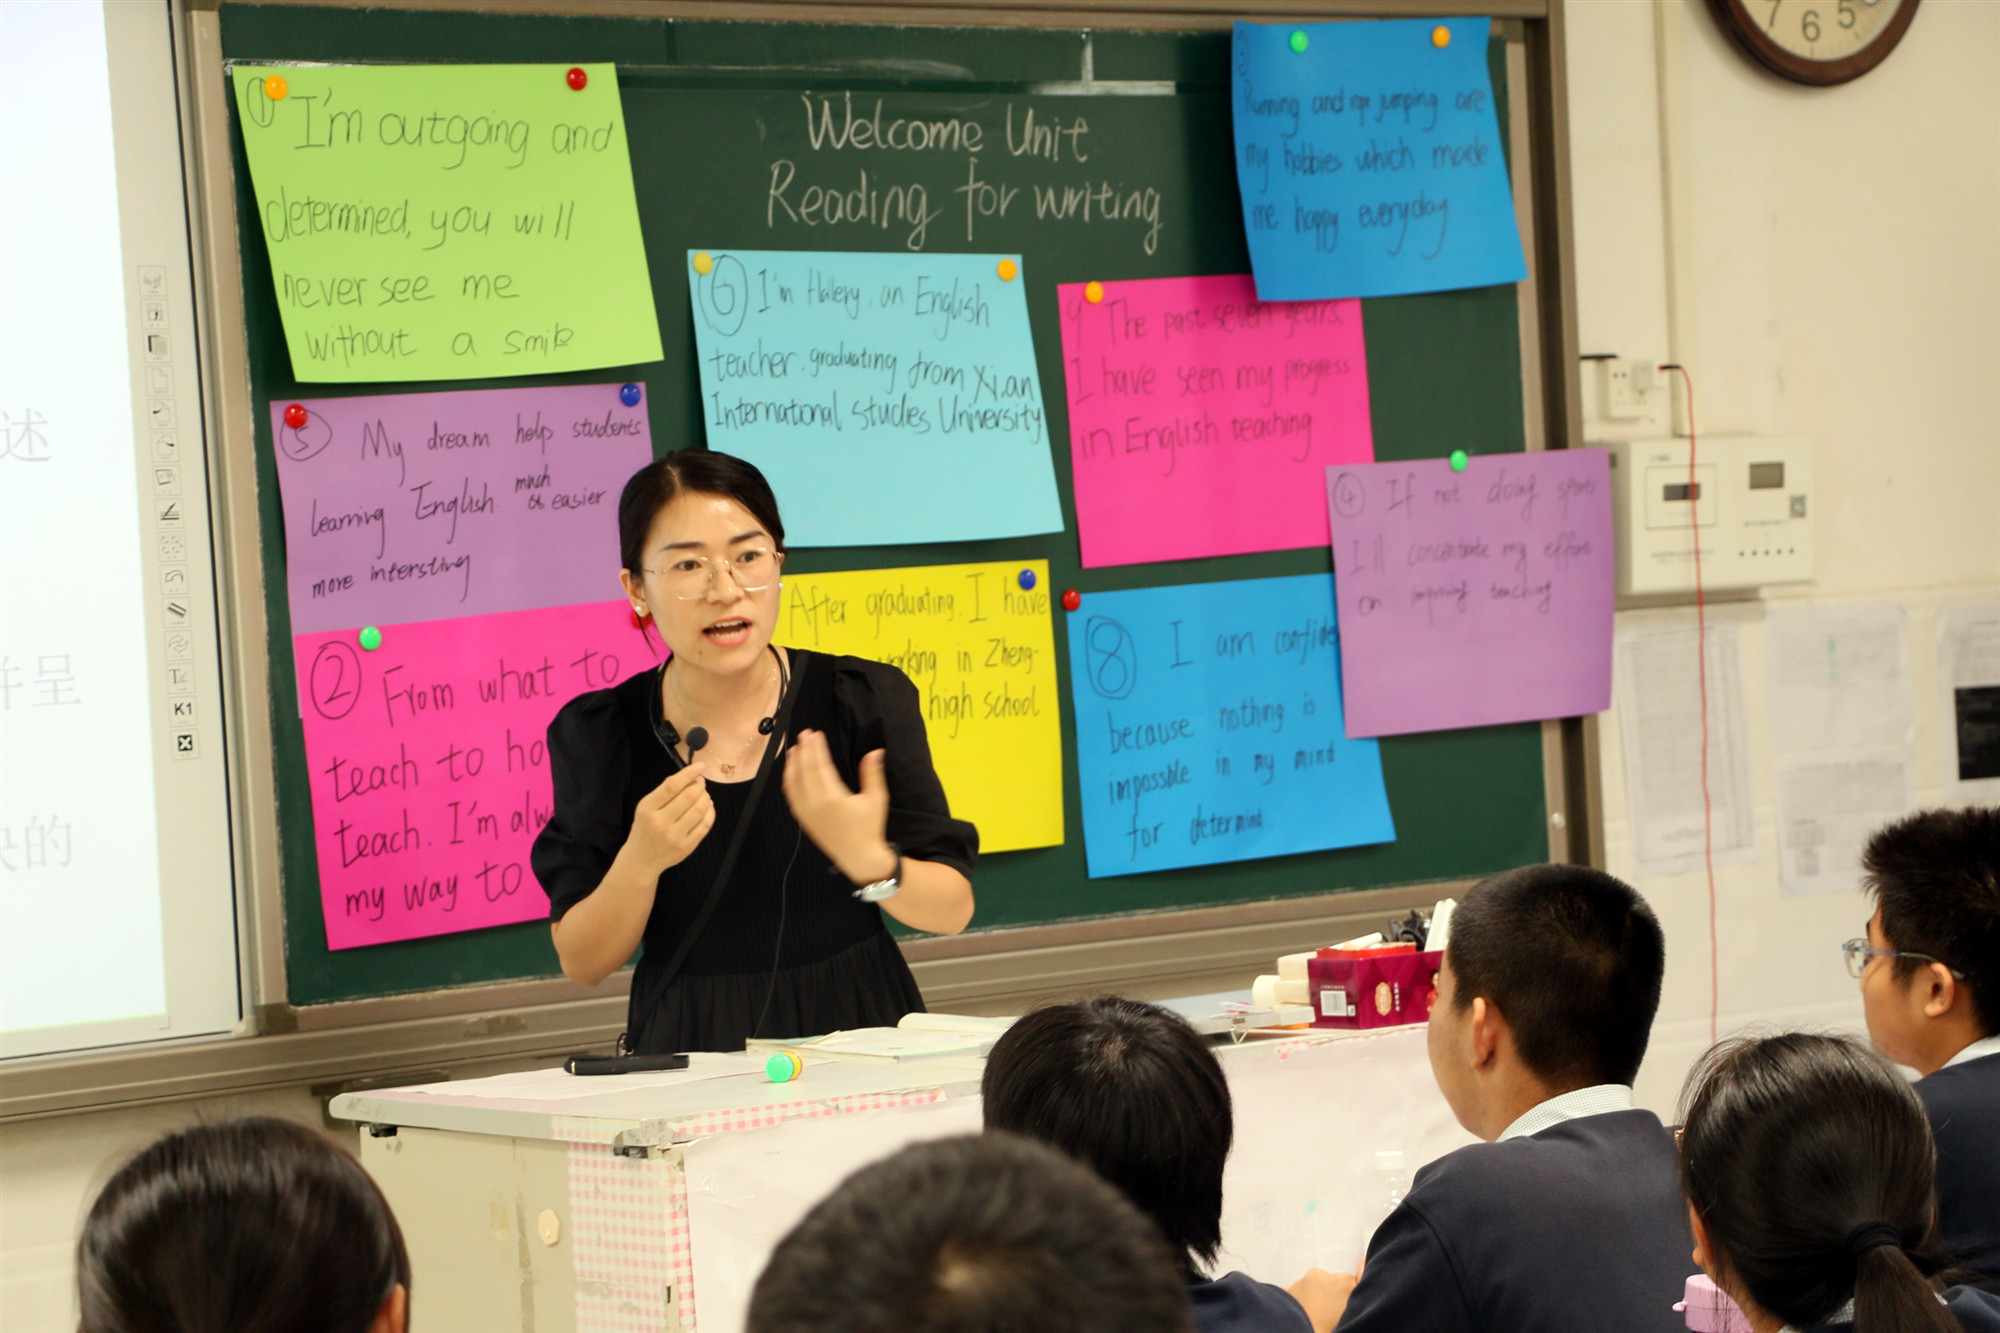 Welcome Unit
Reading for writing
① I'm outgoing and
determined, you will
never see me
without a smile
② From what to
teach to ho
teach. I'm alw
my way to
③
Running and rope jumping are
my hobbies which made
me happy everyday
④ If not doing sports
I'll concentrate my efforts
on improving teaching
⑤ My dream help students
learning English. much
easier
more intersting
⑥ I'm Halery, an English
teacher. graduating from Xi,an
International studies University
After graduating, I have
working in Zheng-
high school
⑧ I am confide
because nothing is
impossble in my mind
for determind
9 The past seven years,
I have seen my progress
in English teaching
7 6 5
述
并呈
的
K1